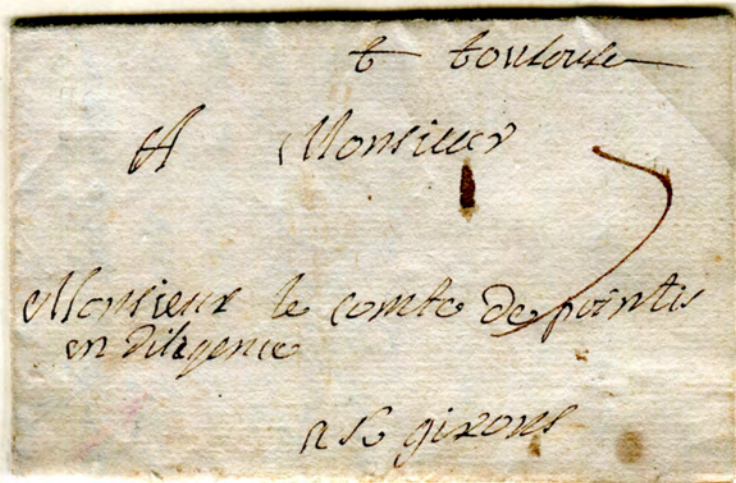 t toulouse
A Monsieur
Monsieur le comte de pointis
en diligence
a St girons